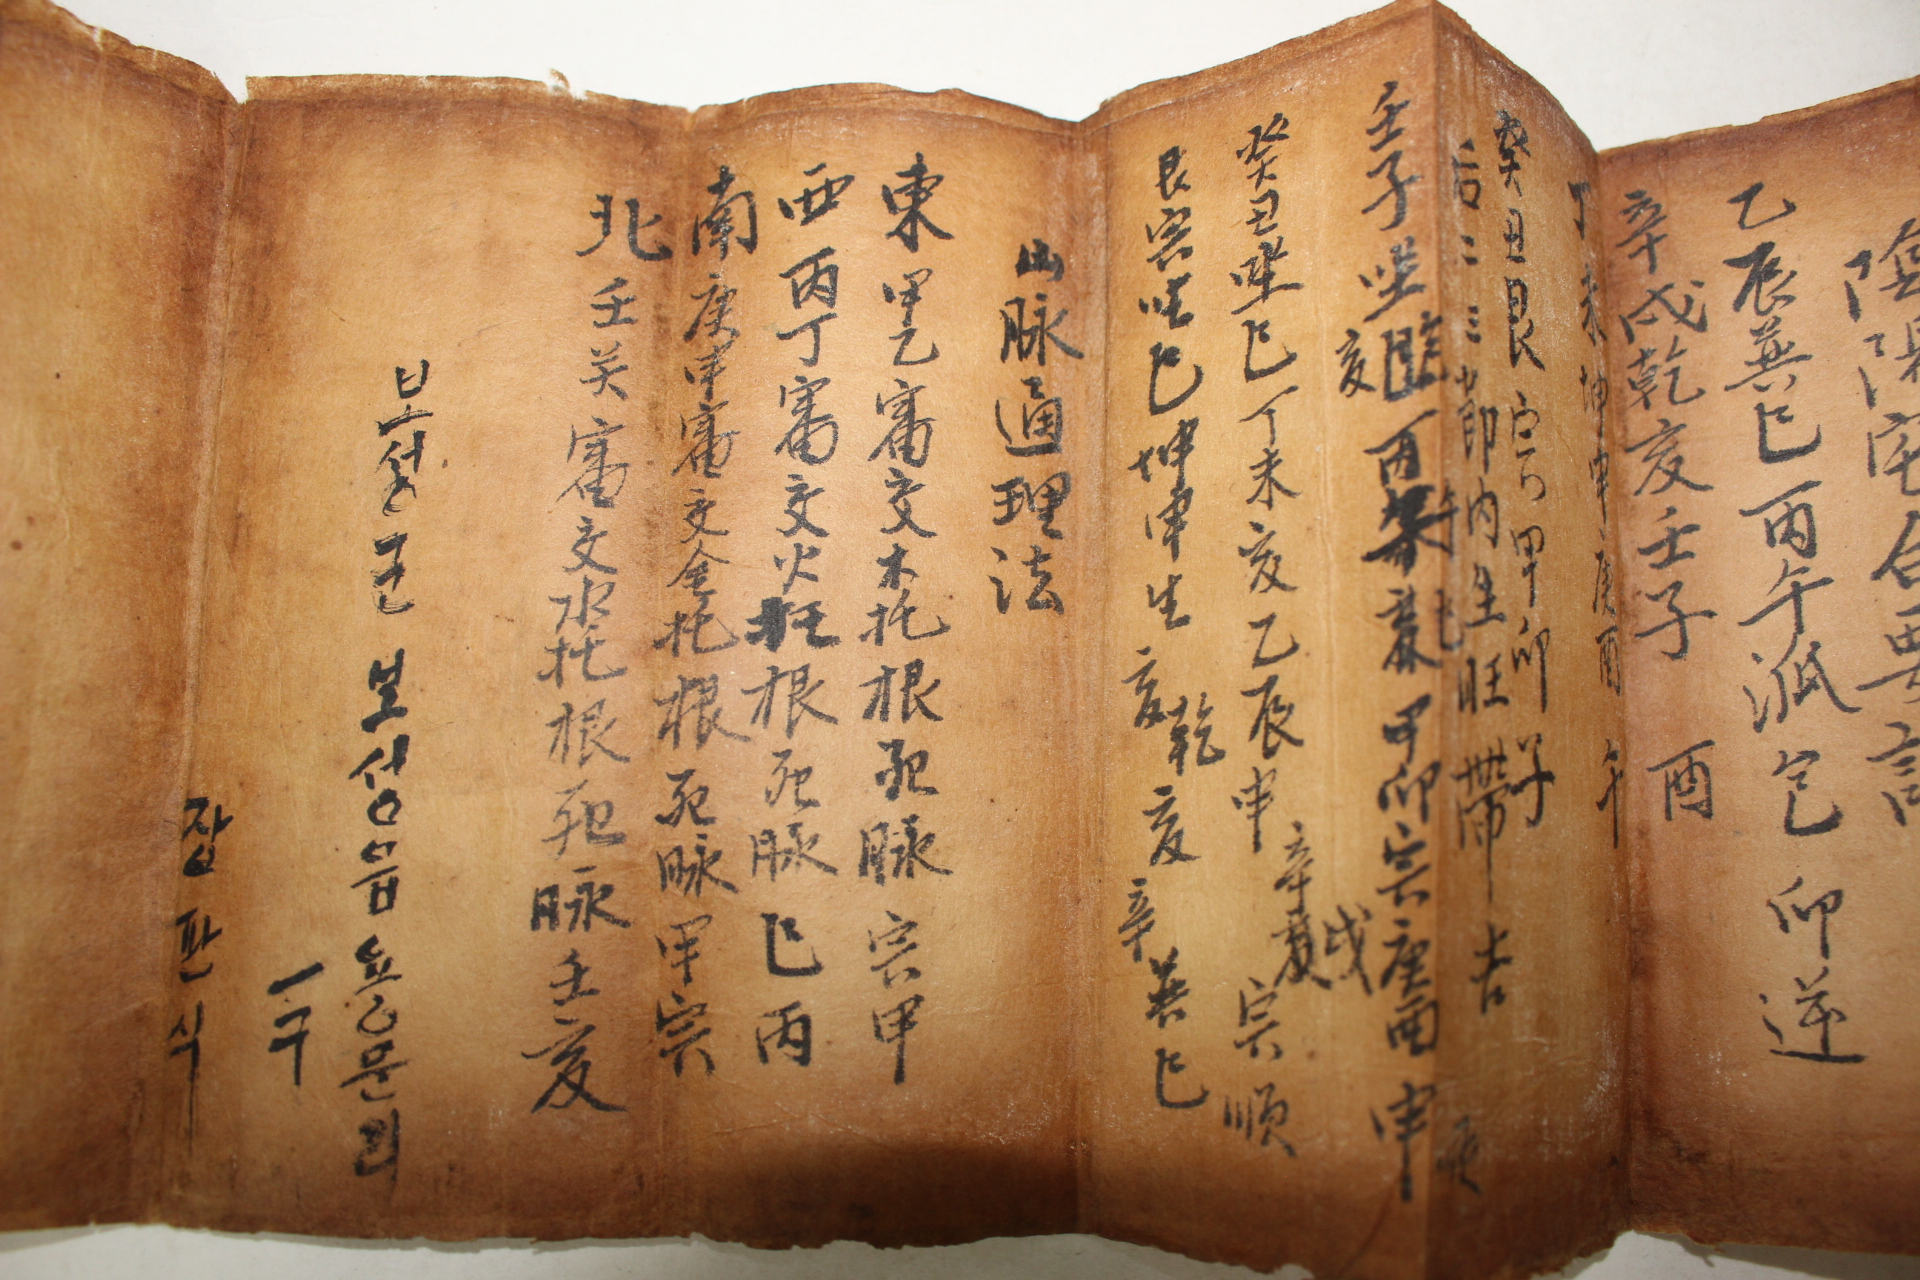 陰陽宅合要訣
乙辰巽巳丙午派包卯逆
辛戌乾亥壬子 酉
丁未坤申庚酉 午
癸丑艮寅甲卯子
后二三節內生旺帶吉
壬子坐 丙 甲卯宗庚酉申
亥
癸丑坐巳丁未亥乙辰申 宗順
辛 戌
艮寅坐巳坤申生亥乾亥辛巽巳
山脉通理法
東甲乙審交木托根死脉宗甲
西丙丁審交火托根死脉巳丙
南庚申審交金托根死脉甲宗
北壬癸審交水托根死脉壬亥
보성군 보성읍 용문리
一구
장판식